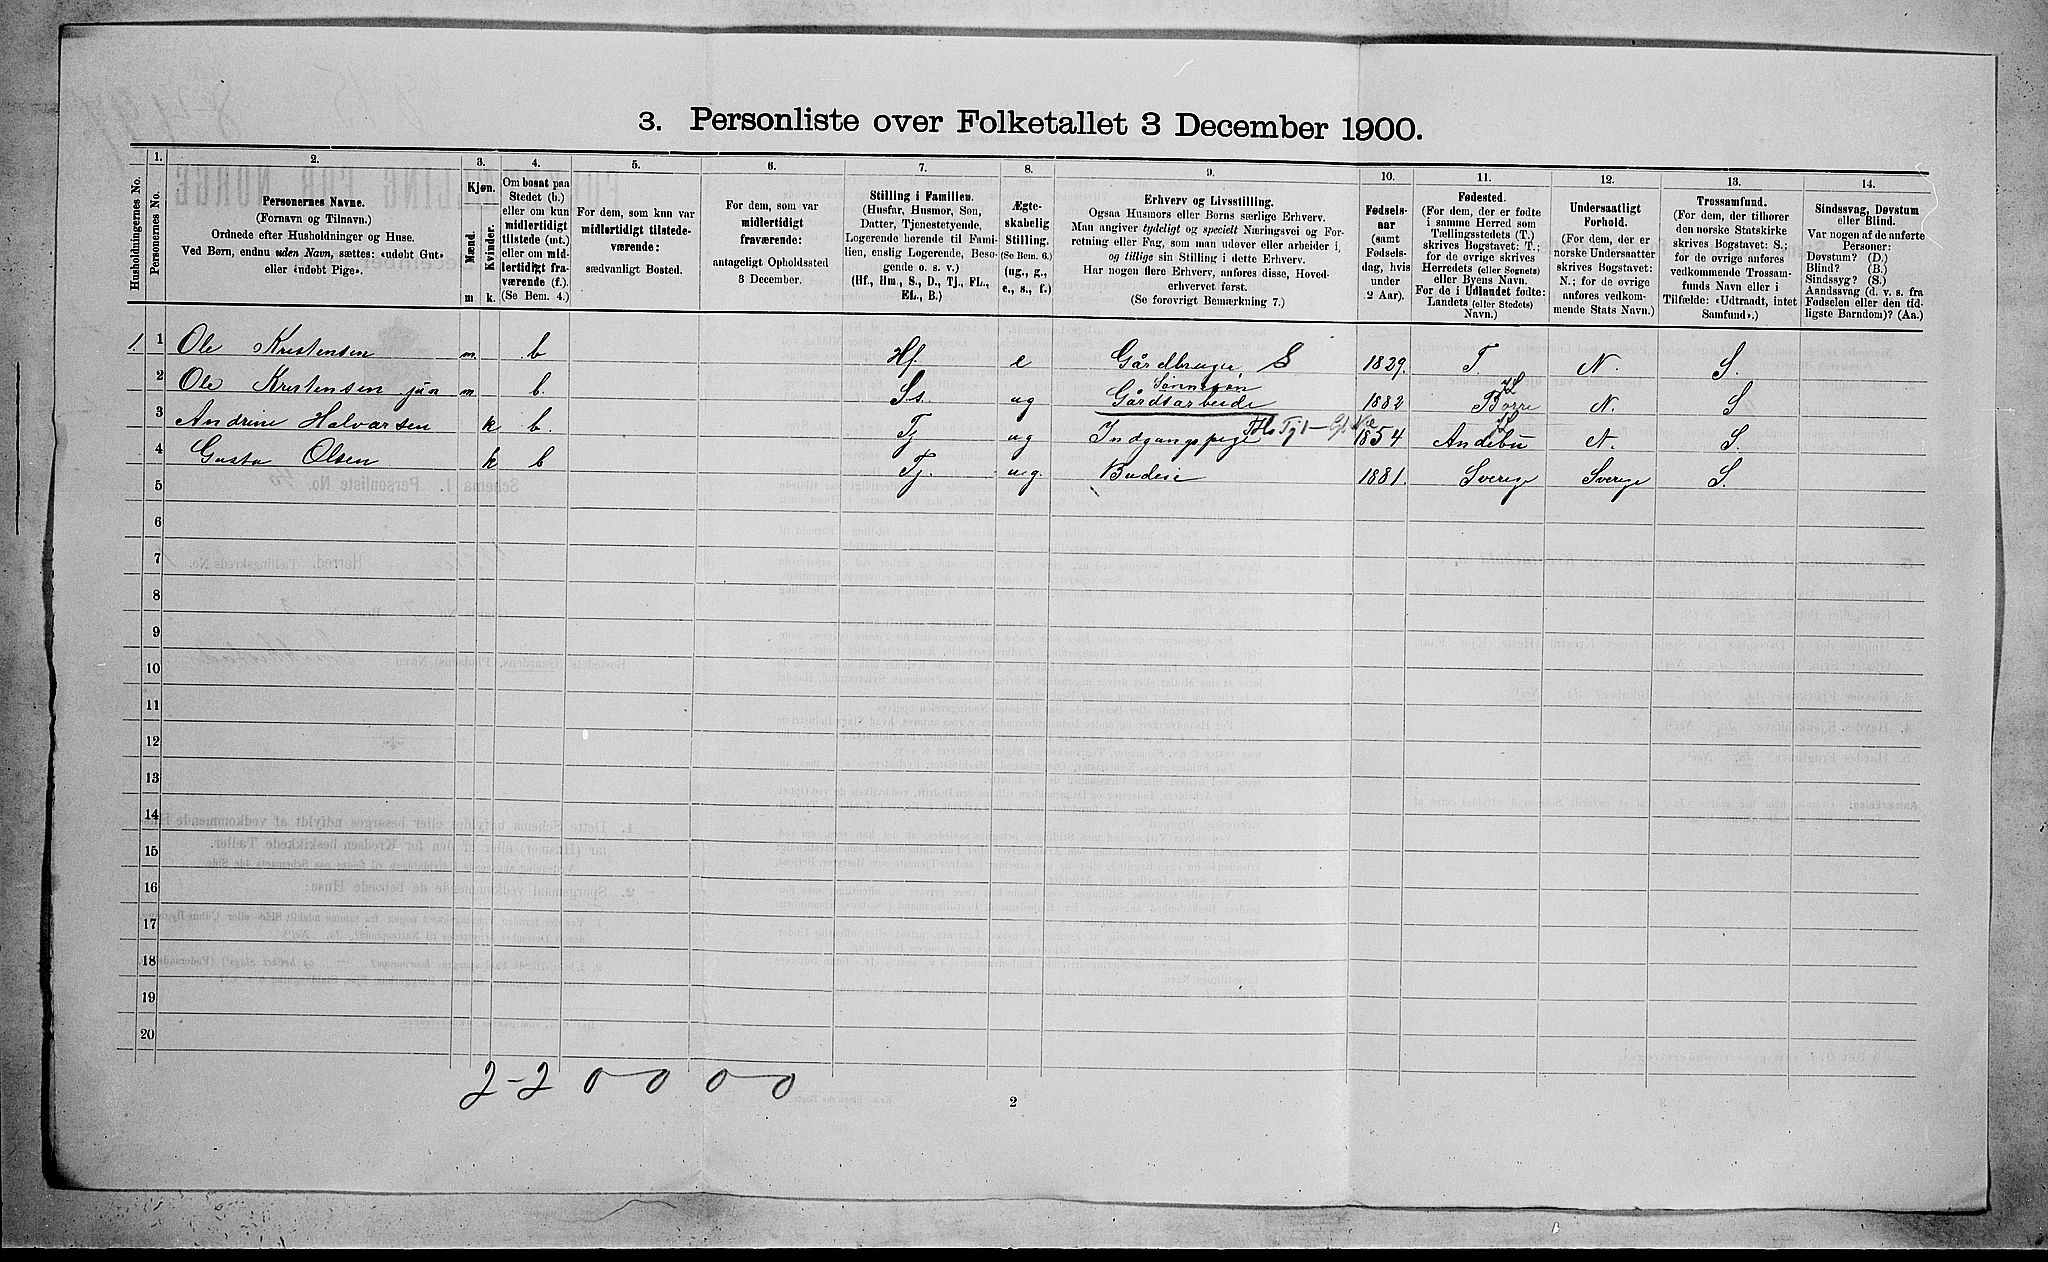 3. Personliste over Folketallet 3 December 1900.
Husholdningernes No.
1.
Personernes No.
2.
Personernes Navne.
(Fornavn og Tilnavn.)
Ordnede efter Husholdninger og Huse.
Ved Børn, endnu uden Navn, sættes: «udøbt Gut»
eller «udøbt Pige».
3.
Kjøn.
Mænd.
Kvinder.
m k.
4.
Om bosat paa
Stedet (b.)
eller om kun
midlertidigt
tilstede (mt.)
eller om mid-
lertidigt fra-
værende (f.)
(Se Bem. 4.)
5.
For dem, som kun var
midlertidigt tilstede-
værende:
sædvanligt Bosted.
6.
For dem, som var
midlertidigt
fraværende:
antageligt Opholdssted
3 December.
7.
Stilling i Familien.
(Husfar, Husmor, Søn,
Datter, Tjenestetyende,
Logerende hørende til Fami-
lien, enslig Logerende, Besø-
gende o. s. v.)
(Hf., Hm., S., D., Tj., FL.,
EL., B.)
8.
Ægte-
skabelig
Stilling.
(Se Bem. 6.)
(ug., g.,
e., s., f.)
9.
Erhverv og Livsstilling.
Ogsaa Husmors eller Børns særlige Erhverv.
Man angiver tydeligt og specielt Næringsvei og For-
retning eller Fag, som man udøver eller arbeider i,
og tillige sin Stilling i dette Erhverv.
Har nogen flere Erhverv, anføres disse, Hoved-
erhvervet først.
(Se forøvrigt Bemærkning 7.)
10.
Fødsels-
aar
(samt
Fødsels-
dag, hvis
under
2 Aar).
11.
Fødested.
(For dem, der er fødte
i samme Herred som
Tællingsstedets (T.)
skrives Bogstavet: T.;
for de øvrige skrives
Herredets (eller Sognets)
eller Byens Navn.
For de i Udlandet fødte:
Landets (eller Stedets)
Navn.)
12.
Undersaatligt
Forhold.
(For dem, der er
norske Undersaatter
skrives Bogstavet:
N.; for de øvrige
anføres vedkom-
mende Stats Navn.)
13.
Trossamfund.
(For dem, der tilhører
den norske Statskirke
skrives Bogstavet: S.;
for de øvrige anføres
vedkommende Trossam-
funds Navn eller i
Tilfælde: «Udtraadt, intet
Samfund».)
14.
Sindssvag, Døvstum
eller Blind.
Var nogen af de anførte
Personer:
Døvstum? (D.)
Blind? (B.)
Sindssyg? (S.)
Aandssvag (d. v. s. fra
Fødselen eller den tid-
ligste Barndom)? (Aa.)
1. 1 Ole Kristensen m b Hf. e Gårdbruger S 1829. T. N. S.
2 Ole Kristensen jun m b. Ss. ug Sønnesøn Gårdsarbeide 1882 Borre N. S
3 Andrine Halvorsen k b. Tj ug Indgangspige 1854 Andebu N. S.
4 Gusta Olsen k b Tj. ug. Budeie 1881. Sverige Sverige S.
5
6
7
8
9
10
11
12
13
14
15
16
17
18
19
20
2-2 0 0 0 0
2